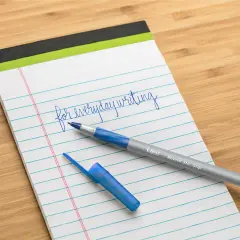 for everyday writing
BIC